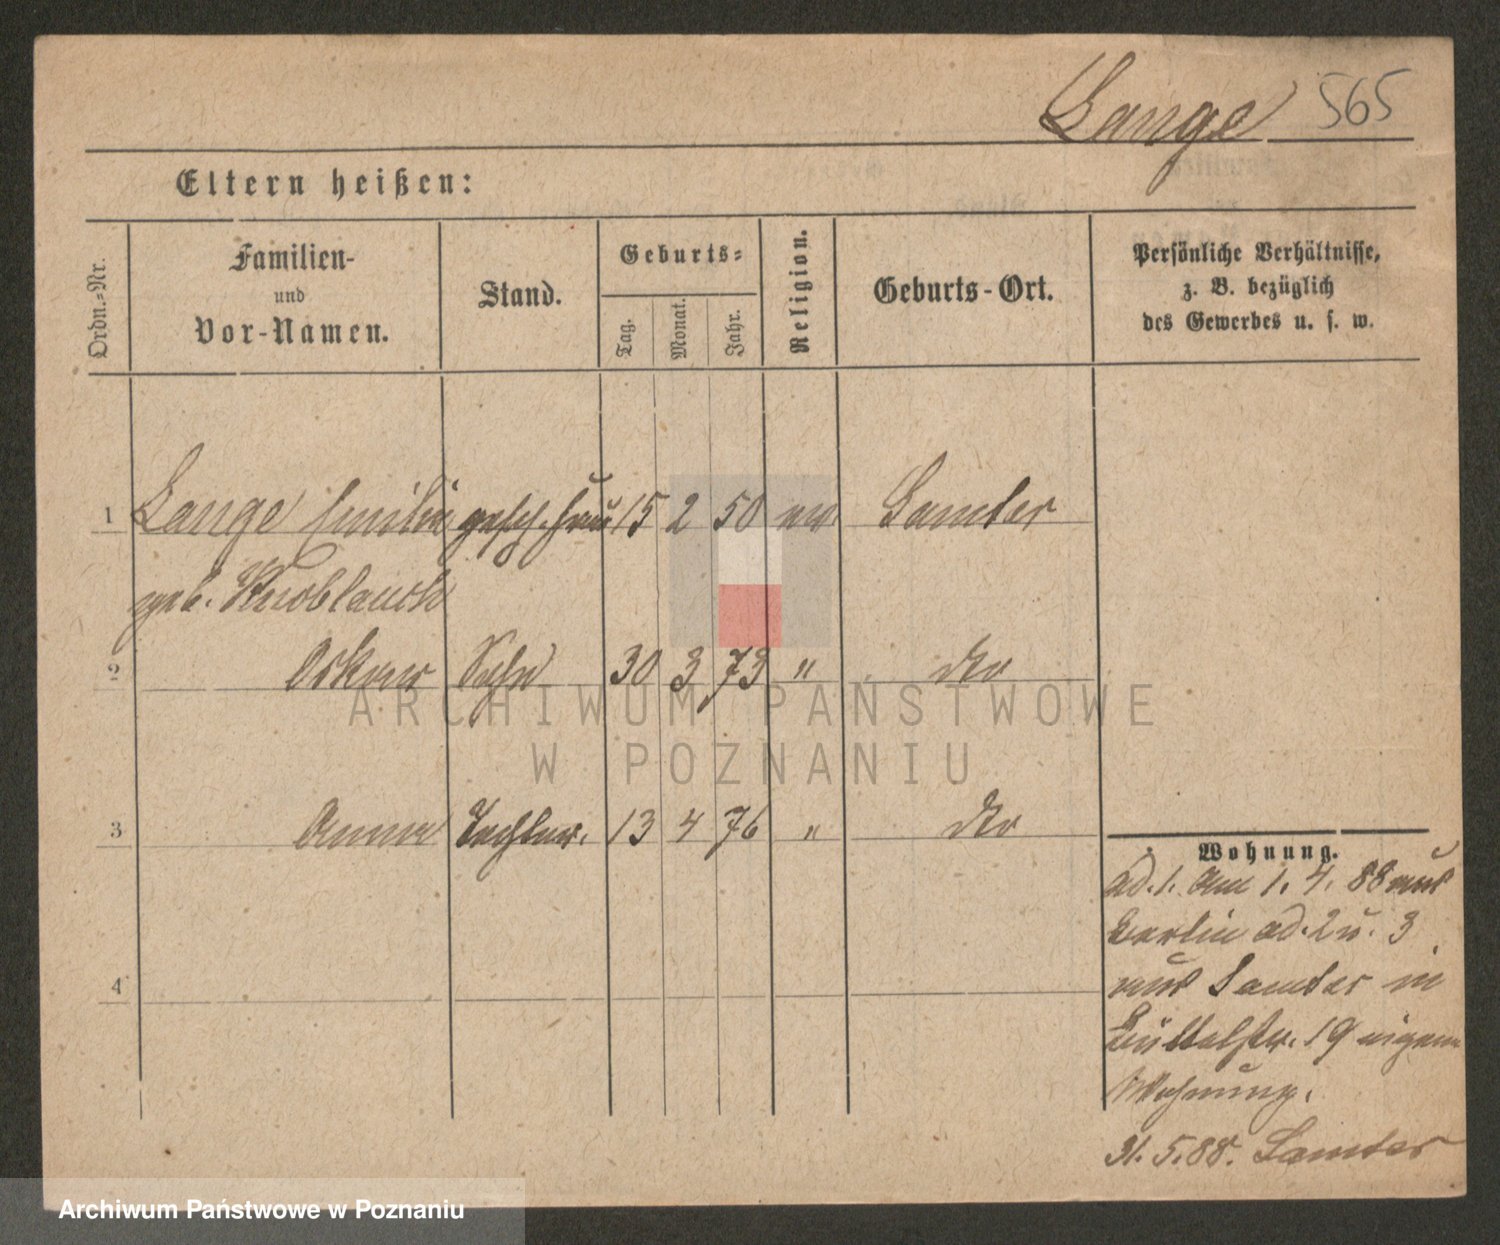 Lange 565
Eltern heißen:
Ordn.=Nr.
Familien-
und
Vor-Namen.
Stand.
Geburts=
Tag.
Monat.
Jahr.
Religion.
Geburts-Ort.
Persönliche Verhältnisse,
z. B. bezüglich
des Gewerbes u. s. w.
1 Lange Emilie gesch. Frau 15 2 50 ev Samter
geb. Knoblauch
2 Oskar Sohn 30 3 73 " dto
3 Anna Tochter. 13 4 76 " dto
4
Wohnung.
ad. 1. am 1. 4. 88 aus
Berlin ad. 2 u. 3
aus Samter in
Büttelstr. 19 eigene
Wohnung.
31. 5. 88. Samter
ARCHIWUM PAŃSTWOWE
W POZNANIU
Archiwum Państwowe w Poznaniu